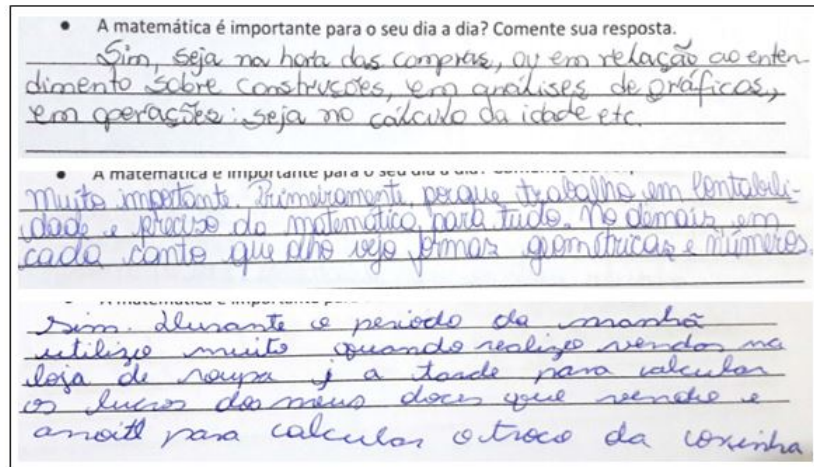 • A matemática é importante para o seu dia a dia? Comente sua resposta.
Sim, seja na hora das compras, ou em relação ao enten-
dimento sobre construções, em análises de gráficos,
em operações: seja no cálculo da idade etc.
• A matemática é importante para o seu dia a dia?
Muito importante. Primeiramente, porque trabalho em contabili-
dade e preciso da matemática para tudo. No demais em
cada canto que olho vejo formas geométricas e números.
A matemática é importante para
Sim. Durante o periodo da manhã
utilizo muito quando realizo vendas na
loja de roupa a tarde para calcular
os lucros dos meus doces que vendo e
anoite para calcular o troco da coxinha